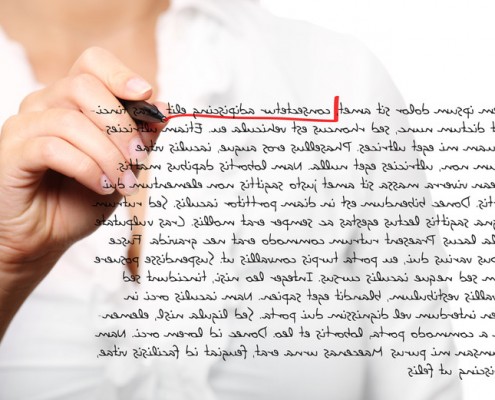 ipsum dolor sit amet, consectetur adipiscing elit tinci-
dictum nunc, sed rhoncus est vehicula eu. Etiam ultricies
mi eget ultrices. Phasellus eros augue, iaculis vitae
non, ultricies eget nulla. Nam lobortis dapibus mattis.
viverra massa sit amet justo sagittis non elementum dui
Donec bibendum est in diam porttitor iaculis. Sed rutrum
sagittis lectus egestas ac semper erat mollis. Cras vulputate
lacus. Praesent rutrum commodo erat nec gravida. Fusce
varius dui, eu porta turpis convallis ut. Suspendisse posuere
sed neque iaculis cursus. Integer leo nisi, tincidunt sed
vestibulum, blandit eget sapien. Nam iaculis orci in
interdum vel dignissim dui porta. Sed ligula nisl, elemen-
a commodo porta, lobortis et leo. Donec id lorem orci. Nam
mi purus mi. Maecenas urna erat, feugiat id facilisis vitae,
ut felis